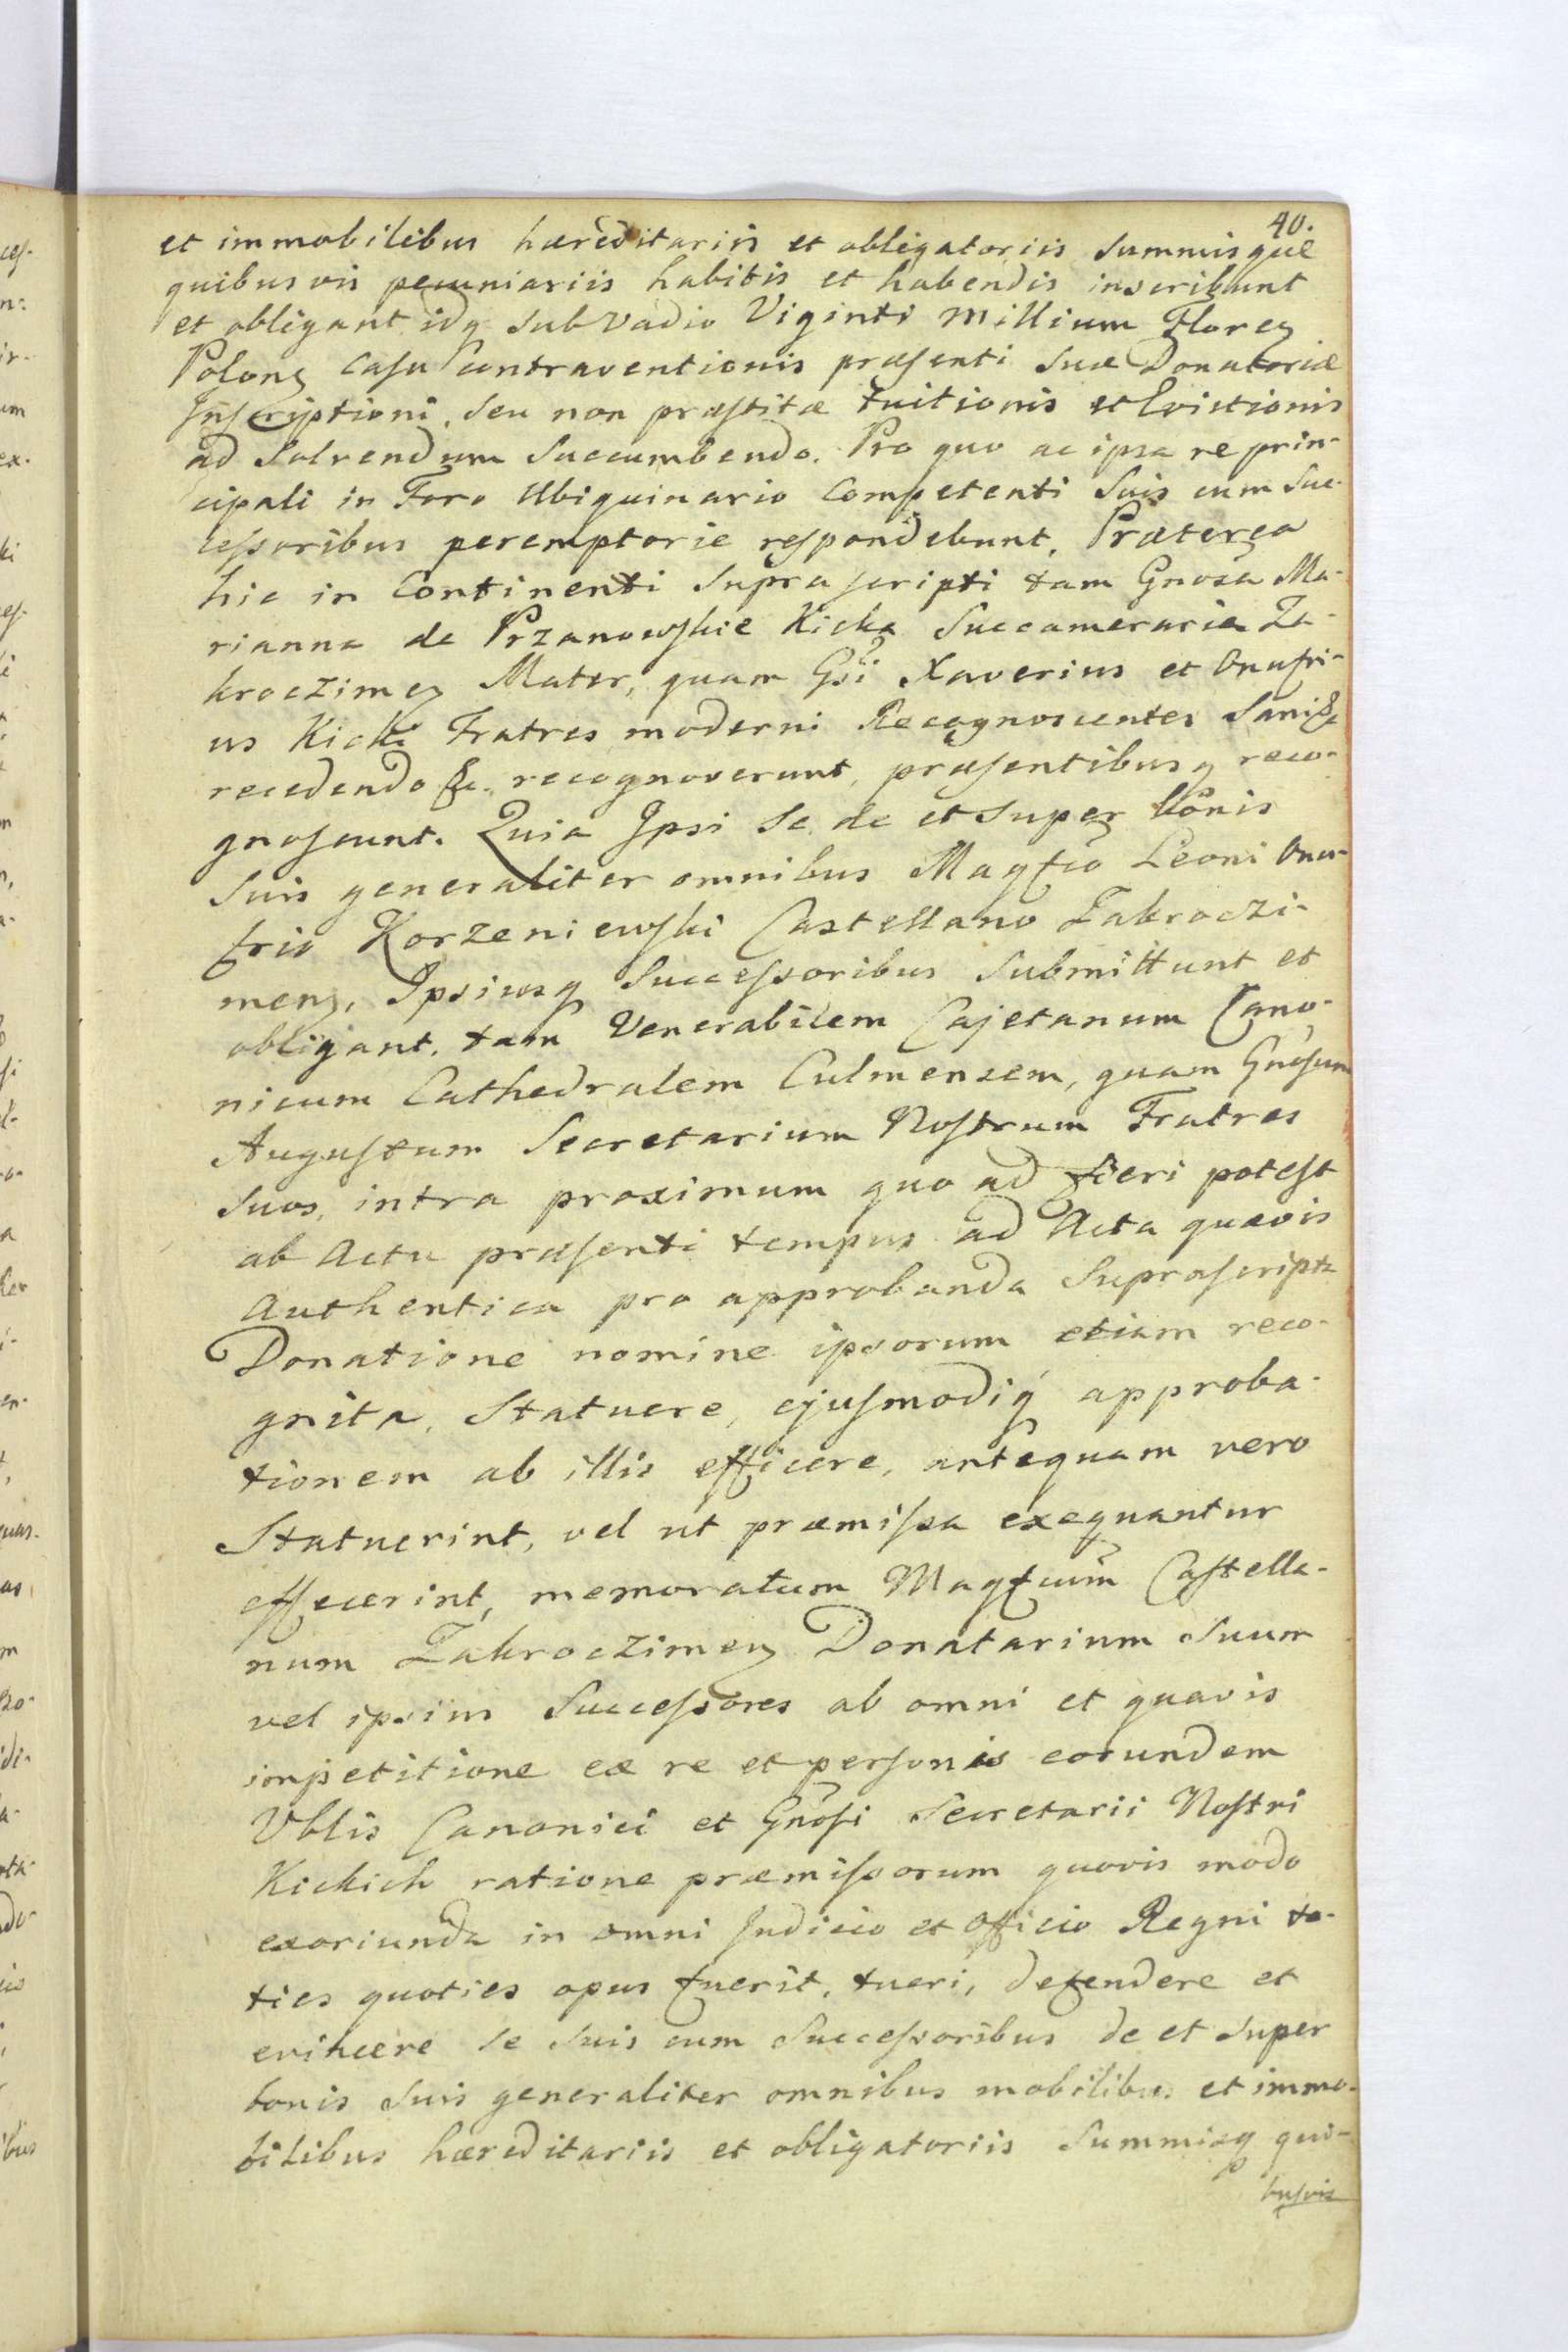 40.
et immobilibus hæreditariis et obligatoriis Summisque
quibusvis pecuniariis habitis et habendis inscribunt
et obligant idq́ sub vadio Viginti Millium Floreṇ
Poloṇ casu contraventionis præsenti suæ Donatoriæ
Inscriptioni, seu non præstitæ tuitionis et Evictionis
ad Solvendum Succumbendo. Pro quo ac ipsa re prin-
cipali in Foro Ubiquinario Competenti Suis cum Suc-
cessoribus peremptorie respondebunt. Præterea
hic in Continenti Suprascripti tam Gnosa Ma-
rianna de Przanowskie Kicka Succameraria Za-
kroczimeṇ Mater, quam Gsi Xaverius et Onufri-
us Kicki Fratres moderni Recognoscentes Sani &c
recedendo &c. recognoverunt, præsentibusq́ reco-
gnoscunt. Quia Ipsi Se de et Super bonis
Suis generaliter omnibus Magfco Leoni Onu-
frio Korzeniewski Castellano Zakroczi-
menṣ, Ipsiusq́ Successoribus Submittunt et
obligant, tam Venerabilem Cajetanum Cano-
nicum Cathedralem Culmensem, quam Gnosum
Augustum Secretarium Nostrum Fratres
Suos, intra proximum quo ad fieri potest
ab Actu præsenti tempus ad Acta quævis
Authentica pro approbanda Suprascripta
Donatione nomine ipsorum etiam reco-
gnita, Statuere, ejusmodiq́ approba-
tionem ab illis efficere, antequam vero
Statuerint, vel ut præmissa exequantur
effecerint, memoratum Magfcum Castella-
num Zakroczimeṇ Donatarium Suum
vel ipsius Successores ab omni et quavis
impetitione ex re et personis eorundem
Vblis Canonici et Gnosi Secretarii Nostri
Kickich ratione præmissorum quovis modo
exoriunda in omni Judicio et Officio Regni to-
ties quoties opus fuerit, tueri, defendere et
evincere se Suis cum Successoribus de et Super
bonis Suis generaliter omnibus mobilibus et immo-
bilibus hæreditariis et obligatoriis Summisq́ qui-
busvis